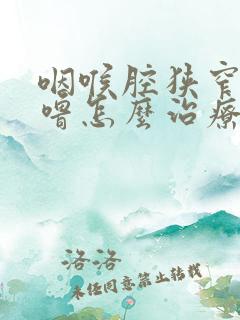 咽喉腔狭窄
嗗怎麼治療
洛洛
未经同意禁止转载